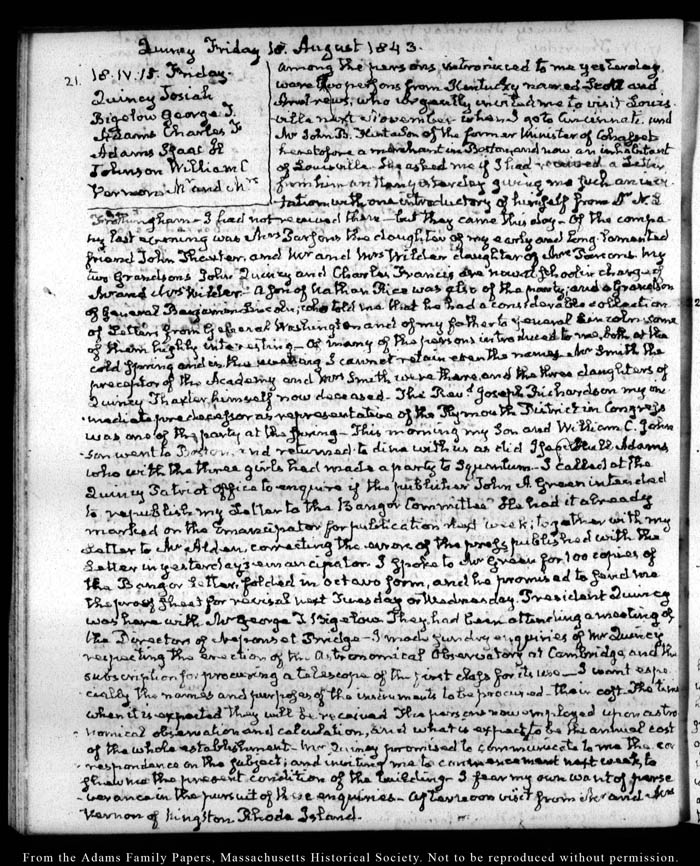 Quincy Friday 18. August 1843.
21. 18. IV. 15. Friday.
Quincy Josiah
Bigelow George T.
Adams Charles F
Adams Isaac H
Johnson William C
Vernon Mr and Mrs
Among the persons introduced to me yesterday
were two persons from Kentucky named Scott and
Andrews, who urgently invited me to visit Louis-
ville next November when I go to Cincinnati. and
Mr John B. Flint a Son of the former Minister of Cohasset
heretofore a merchant in Boston, and now an inhabitant
of Louisville. He asked me if I had received a Letter
from him yesterday giving me such an invi-
tation, with one introductory of himself from Dr N. L
Frothingham— I had not received them— but they came this day— Of the compa-
ny last evening was Mrs Parsons the daughter of my early and long lamented
friend John Thaxter, and Mr and Mrs Wilder daughter of Mrs Parsons. My
two Grandsons John Quincy and Charles Francis are now at School in charge of
Mr and Mrs Wilder— A Son of Nathan Rice was also of the party; and a Grandson
of General Benjamin Lincoln; who told me that he had a considerable collection
of Letters from General Washington and of my father to General Lincoln some
of them highly interesting— Of many of the persons introduced to me, both at the
cold Spring and in the evening I cannot retain even the names. Mr Smith the
preceptor of the Academy and Mrs Smith were there, and the three daughters of
Quincy Thaxter, himself now deceased— The Revd. Joseph Richardson my im-
mediate predecessor as representative of the Plymouth District in Congress
was one of the party at the Spring— This morning my Son and William C. John-
son went to Boston, and returned to dine with us as did Isaac Hull Adams
who with the three girls had made a party to Squantum— I called at the
Quincy Patriot Office to enquire if the publisher John A Green intended
to republish my Letter to the Bangor Committee— He had it already
marked on the Emancipator for publication next week; together with my
Letter to Mr Alden, correcting the error of the press published with the
Letter in yesterday's emancipator. I spoke to Mr Green for 100 copies of
the Bangor Letter, folded in octavo form, and he promised to send me
the proof sheet for revisal next Tuesday or Wednesday. President Quincy
was here with Mr George T. Bigelow. They had been attending a meeting of
the Directors of Neponset Bridge— I made sundry enquiries of Mr Quincy
respecting the erection of the Astronomical Observatory at Cambridge and the
subscription for procuring a telescope of the first class for its use— I want espe-
cially the names and purposes of the instruments to be procured— their cost. The time
when it is expected they will be received The persons now employed upon astro-
nomical observation and calculation, and what is expected to be the annual cost
of the whole establishment— Mr Quincy promised to communicate to me the cor-
respondence on the subject; and inviting me to commencement next week, to
shew me the present condition of the building— I fear my own want of perse-
verance in the pursuit of these enquiries— Afternoon visit from Mr and Mrs
Vernon of Kingston Rhode Island.
From the Adams Family Papers, Massachusetts Historical Society. Not to be reproduced without permission.